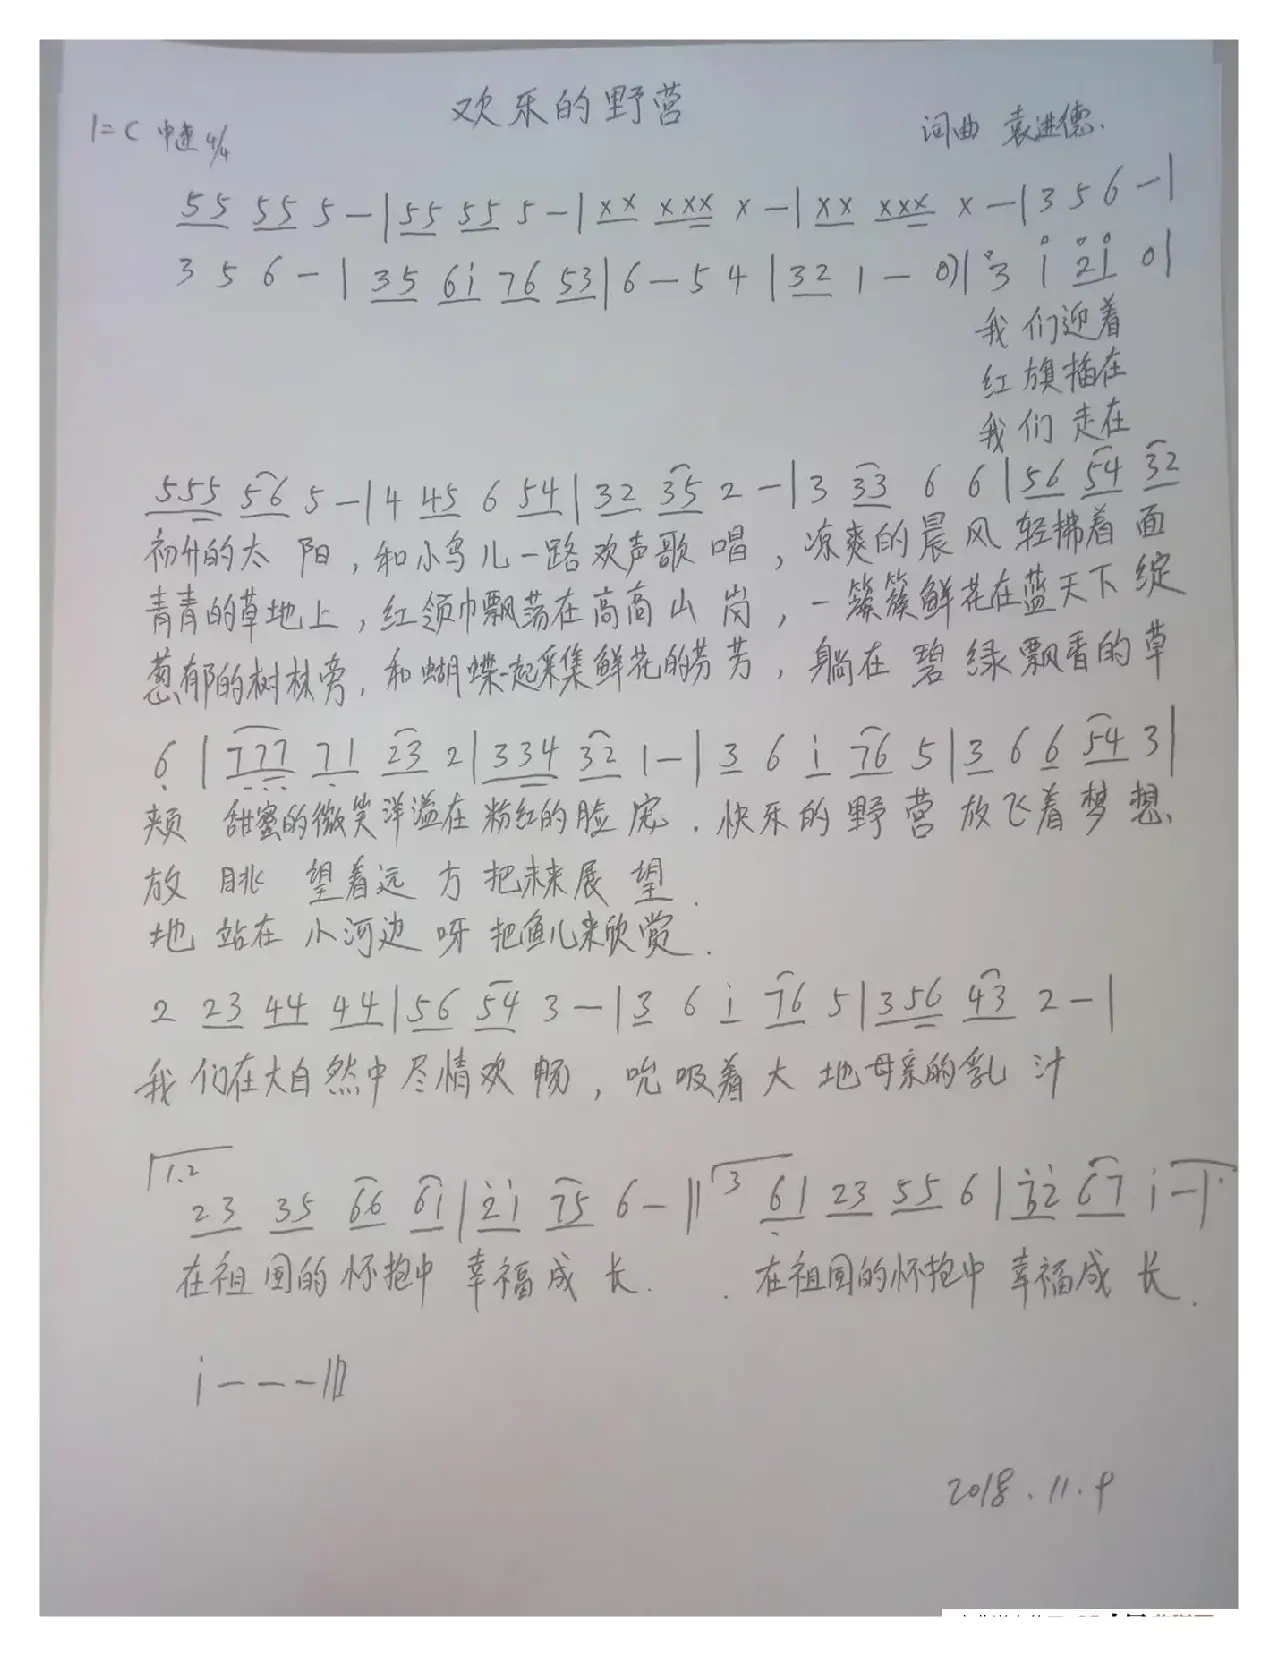 欢乐的野营
1=C 中速 4/4
词曲 袁进德.
55 55 5 - | 55 55 5 - | ×× ××× × - | ×× ××× × - | 3 5 6 - |
3 5 6 - | 35 6i 76 53 | 6 - 5 4 | 32 1 - 0) | 3 i 2i 0 |
我们迎着
红旗插在
我们走在
555 56 5 - | 4 45 6 54 | 32 35 2 - | 3 33 6 6 | 56 54 32
初升的太阳，和小鸟儿一路欢声歌唱，凉爽的晨风轻拂着面
青青的草地上，红领巾飘荡在高高山岗，一簇簇鲜花在蓝天下绽
葱郁的树林旁，和蝴蝶一起采集鲜花的芬芳，躺在碧绿飘香的草
6 | 777 71 23 2 | 334 32 1 - | 3 6 i 76 5 | 3 6 6 54 3 |
颊 甜蜜的微笑洋溢在粉红的脸庞．快乐的野营放飞着梦想、
放 眺望着远方把未来展望．
地 站在小河边呀把鱼儿来欣赏．
2 23 44 44 | 56 54 3 - | 3 6 i 76 5 | 356 43 2 - |
我们在大自然中尽情欢畅，吮吸着大地母亲的乳汁
1.2 23 35 66 6i | 2i 75 6 - || 3 61 23 55 6 | 32 67 i - |
在祖国的怀抱中幸福成长．． 在祖国的怀抱中幸福成长．
i - - - ||
2018.11.9